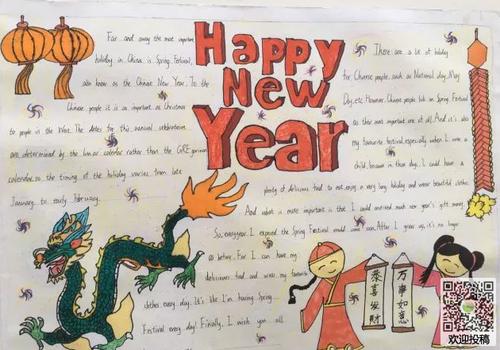 Happy
New
Year
Far and away the most important
holiday in China is Spring Festival,
also known as the Chinese New Year. To the
Chinese people it is as important as Christmas
to people in the West. The dates for this annual celebration
are determined by the lunar calendar rather than the
calendar, so the timing of the holiday varies from late
January to early February.
There are a lot of holiday
for Chinese people, such as National day, May
Day, etc. However, Chinese people take Spring Festival
as their most important one of all. And it's also
my favourite festival, especially when I were a
child, because in those day, I could have a
plenty of delicious food to eat, enjoy a very long holiday and wear beautiful clothes.
And what is more important is that I could received much new year's gift money.
So, everyyear I expected the Spring Festival would come soon. After I grew up, it's no longer
so better. For I can have my
delicious food and wear my favourite
clothes every day. It's like I'm having Spring
Festival every day. Finally, I wish you all
恭喜發財
万事如意
欢迎投稿